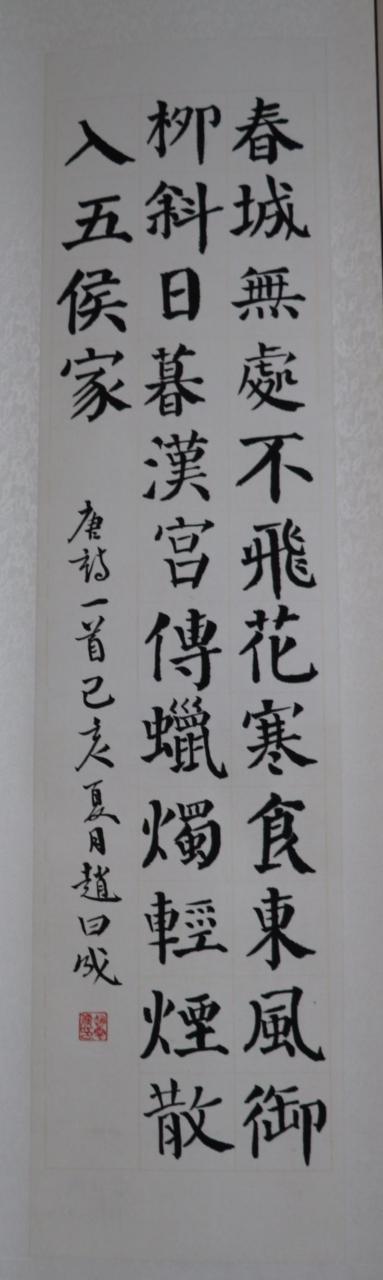 春城無處不飛花寒食東風御
柳斜日暮漢宮傳蠟燭輕煙散
入五侯家
唐詩一首己亥夏月趙曰成